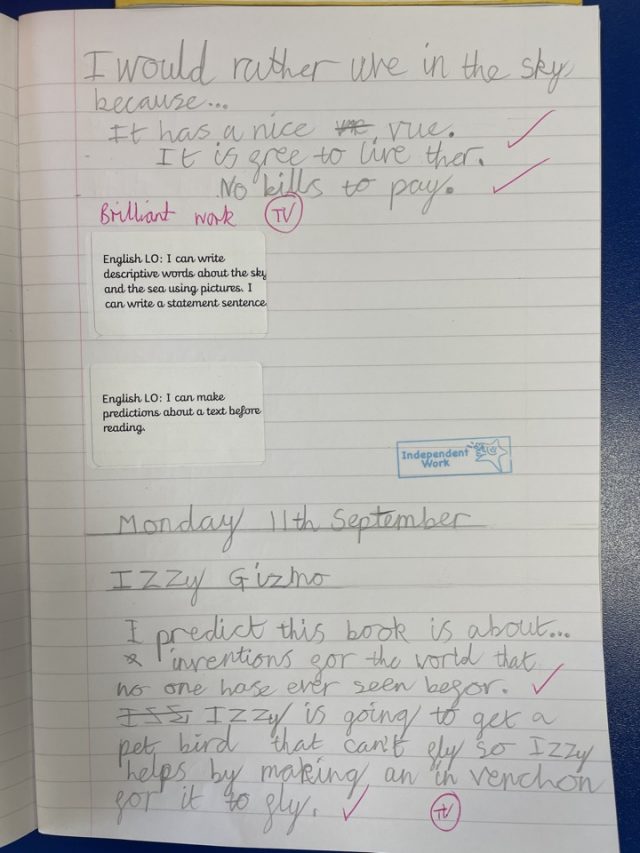 I would rather live in the sky
because...
It has a nice vue.
It is free to live ther.
No bills to pay.
Brilliant work TV
English LO: I can write
descriptive words about the sky
and the sea using pictures. I
can write a statement sentence
English LO: I can make
predictions about a text before
reading.
Independent
Work
Monday 11th September
Izzy Gizmo
I predict this book is about...
inventions for the world that
no one hase ever seen befor.
Izzy is going to get a
pet bird that can't fly so Izzy
helps by making an in venchon
for it to fly.
TV